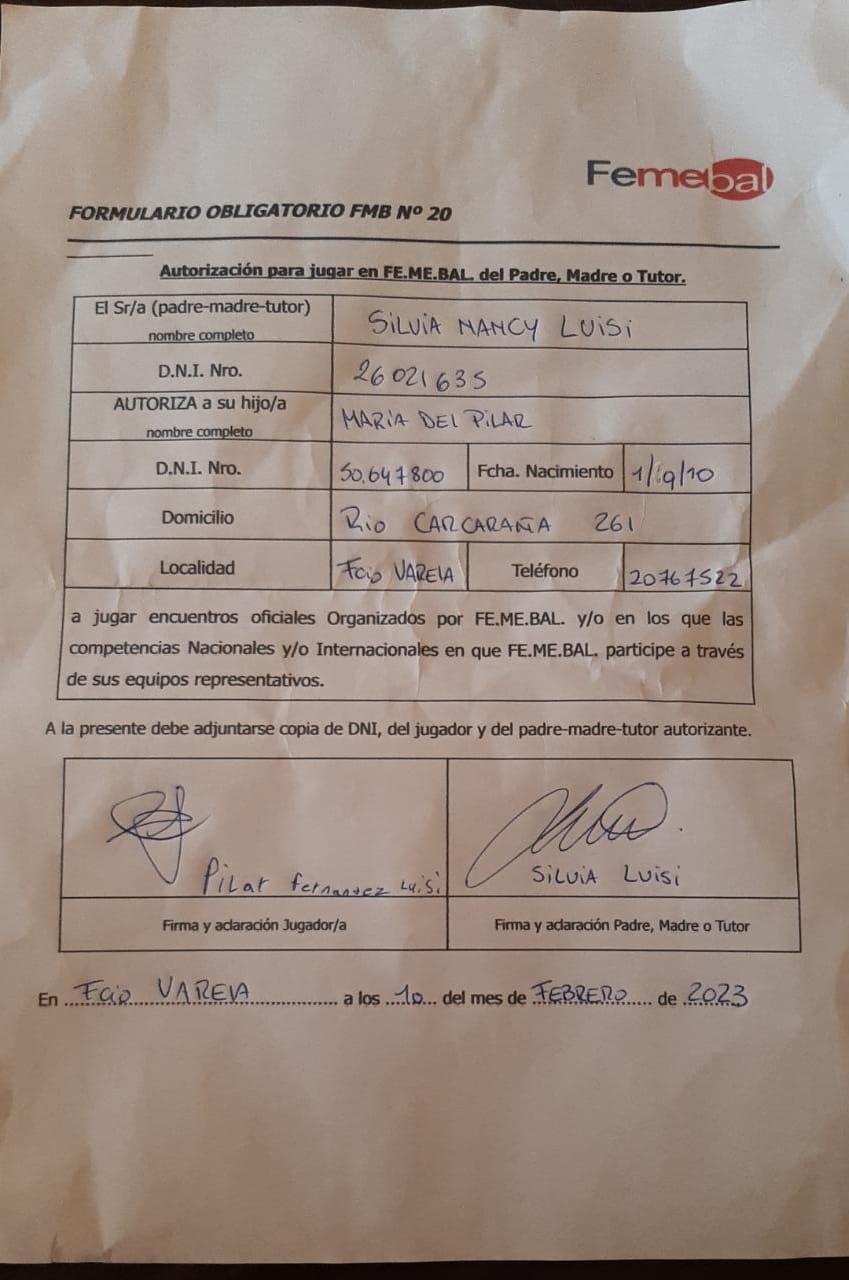 Femebal
FORMULARIO OBLIGATORIO FMB Nº 20
Autorización para jugar en FE.ME.BAL. del Padre, Madre o Tutor.
El Sr/a (padre-madre-tutor) nombre completo SILVIA NANCY LUISI
D.N.I. Nro. 26021635
AUTORIZA a su hijo/a nombre completo MARIA DEL PILAR
D.N.I. Nro. 50.647800 Fcha. Nacimiento 1/9/10
Domicilio Rio CARCARAÑA 261
Localidad Fcio VARELA Teléfono 20767522
a jugar encuentros oficiales Organizados por FE.ME.BAL. y/o en los que las
competencias Nacionales y/o Internacionales en que FE.ME.BAL. participe a través
de sus equipos representativos.
A la presente debe adjuntarse copia de DNI, del jugador y del padre-madre-tutor autorizante.
Pilar Fernandez Luisi
SILVIA LUISI
Firma y aclaración Jugador/a
Firma y aclaración Padre, Madre o Tutor
En Fcio VARELA a los 10 del mes de FEBRERO de 2023